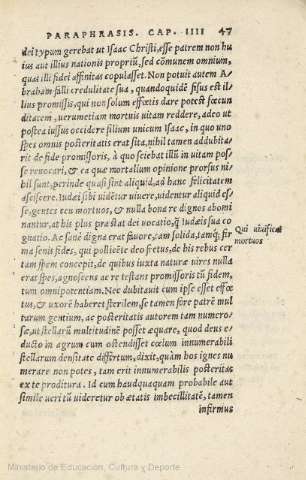 PARAPHRASIS. CAP. IIII 47
dei typum gerebat ut Isaac Christi, esse patrem non hu
ius aut illius nationis propriũ, sed cõmunem omnium,
quas illi fidei affinitas copulasset. Non potuit autem A/
braham falli credulitate sua, quandoquidẽ fisus est il/
lius promissis, qui non solum effœtis dare potest fœcun
ditatem, uerumetiam mortuis uitam reddere, adeo ut
postea iussus occidere filium unicum Isaac, in quo uno
spes omnis posteritatis erat sita, nihil tamen addubita/
rit de fide promissoris, à quo sciebat illũ in uitam pos/
se reuocari, & ea quæ mortalium opinione prorsus ni/
hil sunt, perinde quasi sint aliquid, ad hanc felicitatem
asciscere. Iudæi sibi uidẽtur uiuere, uidentur aliquid es/
se, gentes ceu mortuos, & nulla bona re dignos abomi
nantur, at his plus præstat dei uocatio, ꝗ̃ Iudæis sua co
gnatio. Ac sanè digna erat fauore, tam solida, tamꝗ̃; fir
ma senis fides, qui pollicẽte deo fretus, de his rebus cer
tam spem concepit, de quibus iuxta naturæ uires nulla
erat spes, agnoscens ac re testans promissoris tũ fidem,
tum omnipotentiam. Nec dubitauit cum ipse esset effœ
tus, & uxorẽ haberet sterilem, se tamen fore patrẽ mul
tarum gentium, ac posteritatis autorem tam numero/
sæ, ut stellarũ multitudinẽ posset æquare, quod deus e/
ducto in agrum cum ostendisset cœlum innumerabili
stellarum densitate differtum, dixit, quàm hos ignes nu
merare non potes, tam erit innumerabilis posteritas
ex te proditura. Id cum haudquaquam probabile aut
simile ueri tũ uideretur ob ætatis imbecillitatẽ, tamen
infirmus
Qui uiuificat
mortuos
Ministerio de Educación, Cultura y Deporte